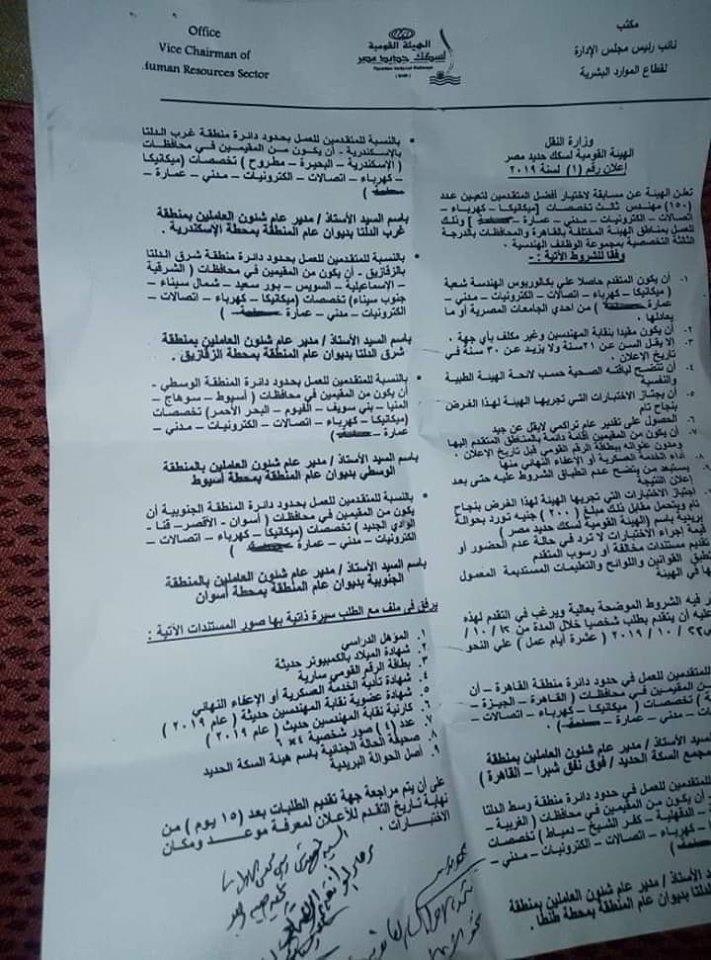 مكتب
نائب رئيس مجلس الإدارة
لقطاع الموارد البشرية
الهيئة القومية
لسكك حديد مصر
Egyptian National Railways
( ENR )
Office
Vice Chairman of
Human Resources Sector
وزارة النقل
الهيئة القومية لسكك حديد مصر
إعلان رقم (١) لسنة ٢٠١٩
تعلن الهيئة عن مسابقة لاختيار أفضل المتقدمين لتعيين عدد
(١٥٠) مهندس ثالث تخصصات (ميكانيكا – كهرباء –
اتصالات – الكترونيات – مدني – عمارة – ) وذلك
للعمل بمناطق الهيئة المختلفة بالقاهرة والمحافظات بالدرجة
الثالثة التخصصية بمجموعة الوظائف الهندسية .
وفقا للشروط الآتية :-
١- أن يكون المتقدم حاصلا علي بكالوريوس الهندسة شعبة
( ميكانيكا – كهرباء – اتصالات – الكترونيات – مدني –
عمارة – ) من احدي الجامعات المصرية أو ما
يعادلها .
٢- أن يكون مقيدا بنقابة المهندسين وغير مكلف بأي جهة .
٣- إلا يقل السن عن ٢١ سنة ولا يزيد عن ٣٠ سنة في
تاريخ الإعلان .
٤- أن تتضح لياقته الصحية حسب لائحة الهيئة الطبية
والنفسية
٥- أن يجتاز الاختبارات التي تجريها الهيئة لهذا الغرض
بنجاح تام
٦- الحصول علي تقدير عام تراكمي لايقل عن جيد
٧- أن يكون من المقيمين إقامة دائمة بالمناطق المتقدم إليها
ومدون عنوانه ببطاقة الرقم القومي قبل تاريخ الإعلان .
٨- أداء الخدمة العسكرية أو الأعفاء النهائي منها
يستبعد من يتضح عدم انطباق الشروط عليه حتى بعد
إعلان النتيجة
اجتياز الاختبارات التي تجريها الهيئة لهذا الغرض بنجاح
تام ويتحمل مقابل ذلك مبلغ (٢٠٠) جنيه تورد بحوالة
بريدية باسم (الهيئة القومية لسكك حديد مصر )
قيمة إجراء الاختبارات لا ترد في حالة عدم الحضور أو
تقديم مستندات مخالفة أو رسوب المتقدم
القوانين واللوائح والتعليمات المستديمة المعمول
بها في الهيئة
فيه الشروط الموضحة بعالية ويرغب في التقدم لهذه
عليه أن يتقدم بطلب شخصيا خلال المدة من
١٠ / ٢٠١٩ ( عشرة أيام عمل ) علي النحو
للمتقدمين للعمل في حدود دائرة منطقة القاهرة – أن
من المقيمين في محافظات ( القاهرة – الجيزة –
) تخصصات ( ميكانيكا – كهرباء – اتصالات –
– مدني – عمارة – )
السيد الأستاذ / مدير عام شئون العاملين بمنطقة
بمجمع السكة الحديد / فوق نفق شبرا – القاهرة )
للمتقدمين للعمل في حدود دائرة منطقة وسط الدلتا
أن يكون من المقيمين في محافظات ( الغربية –
– الدقهلية – كفر الشيخ – دمياط ) تخصصات
– كهرباء – اتصالات – الكترونيات – مدني –
السيد الأستاذ / مدير عام شئون العاملين بمنطقة
بديوان عام المنطقة بمحطة طنطا .
• بالنسبة للمتقدمين للعمل بحدود دائرة منطقة غرب الدلتا
بالإسكندرية - أن يكون من المقيمين في محافظات
( الإسكندرية – البحيرة – مطروح ) تخصصات (ميكانيكا
– كهرباء – اتصالات – الكترونيات – مدني – عمارة –
)
باسم السيد الأستاذ / مدير عام شئون العاملين بمنطقة
غرب الدلتا بديوان عام المنطقة بمحطة الإسكندرية .
• بالنسبة للمتقدمين للعمل بحدود دائرة منطقة شرق الدلتا
بالزقازيق - أن يكون من المقيمين في محافظات ( الشرقية
– الإسماعيلية – السويس – بور سعيد – شمال سيناء –
جنوب سيناء) تخصصات (ميكانيكا – كهرباء – اتصالات –
الكترونيات – مدني – عمارة )
باسم السيد الأستاذ / مدير عام شئون العاملين بمنطقة
شرق الدلتا بديوان عام المنطقة بمحطة الزقازيق .
• بالنسبة للمتقدمين للعمل بحدود دائرة المنطقة الوسطي -
أن يكون من المقيمين في محافظات ( أسيوط – سوهاج –
المنيا – بني سويف – الفيوم – البحر الأحمر) تخصصات
(ميكانيكا – كهرباء – اتصالات – الكترونيات – مدني –
عمارة – )
باسم السيد الأستاذ / مدير عام شئون العاملين بالمنطقة
الوسطي بديوان عام المنطقة بمحطة أسيوط
• بالنسبة للمتقدمين للعمل بحدود دائرة المنطقة الجنوبية أن
يكون من المقيمين في محافظات ( أسوان – الأقصر – قنا –
الوادي الجديد ) تخصصات (ميكانيكا – كهرباء – اتصالات –
الكترونيات – مدني – عمارة – )
باسم السيد الأستاذ / مدير عام شئون العاملين بالمنطقة
الجنوبية بديوان عام المنطقة بمحطة أسوان
يرفق في ملف مع الطلب سيرة ذاتية بها صور المستندات الآتية :
١. المؤهل الدراسي
٢. شهادة الميلاد بالكمبيوتر حديثة
٣. بطاقة الرقم القومي سارية
٤. شهادة تأدية الخدمة العسكرية أو الإعفاء النهائي
٥. شهادة عضوية نقابة المهندسين حديثة ( عام ٢٠١٩ )
٦. كارنية نقابة المهندسين حديث ( عام ٢٠١٩ )
٧. عدد (٤) صور شخصية ٤×٦
٨. صحيفة الحالة الجنائية باسم هيئة السكة الحديد
٩. أصل الحوالة البريدية
علي أن يتم مراجعة جهة تقديم الطلبات بعد (١٥ يوم ) من
نهاية تاريخ التقدم للأعلان لمعرفة موعد ومكان
الاختبارات .